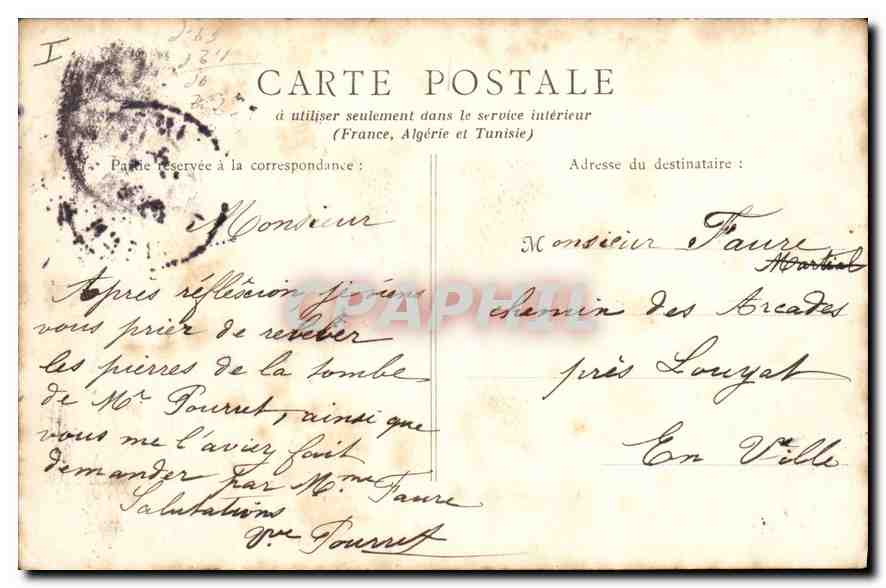 I
CARTE POSTALE
à utiliser seulement dans le service intérieur
(France, Algérie et Tunisie)
Partie réservée à la correspondance :
Monsieur
Après réflêscion je viens
vous prier de reveler
les pierres de la tombe
de Mr Pourret, ainsi que
vous me l'aviez fait
demander par Mme Faure
Salutations
Vve Pourret
Adresse du destinataire :
Monsieur Faure
Martial
chemin des Arcades
près Louyat
En Ville
CPAPHIL